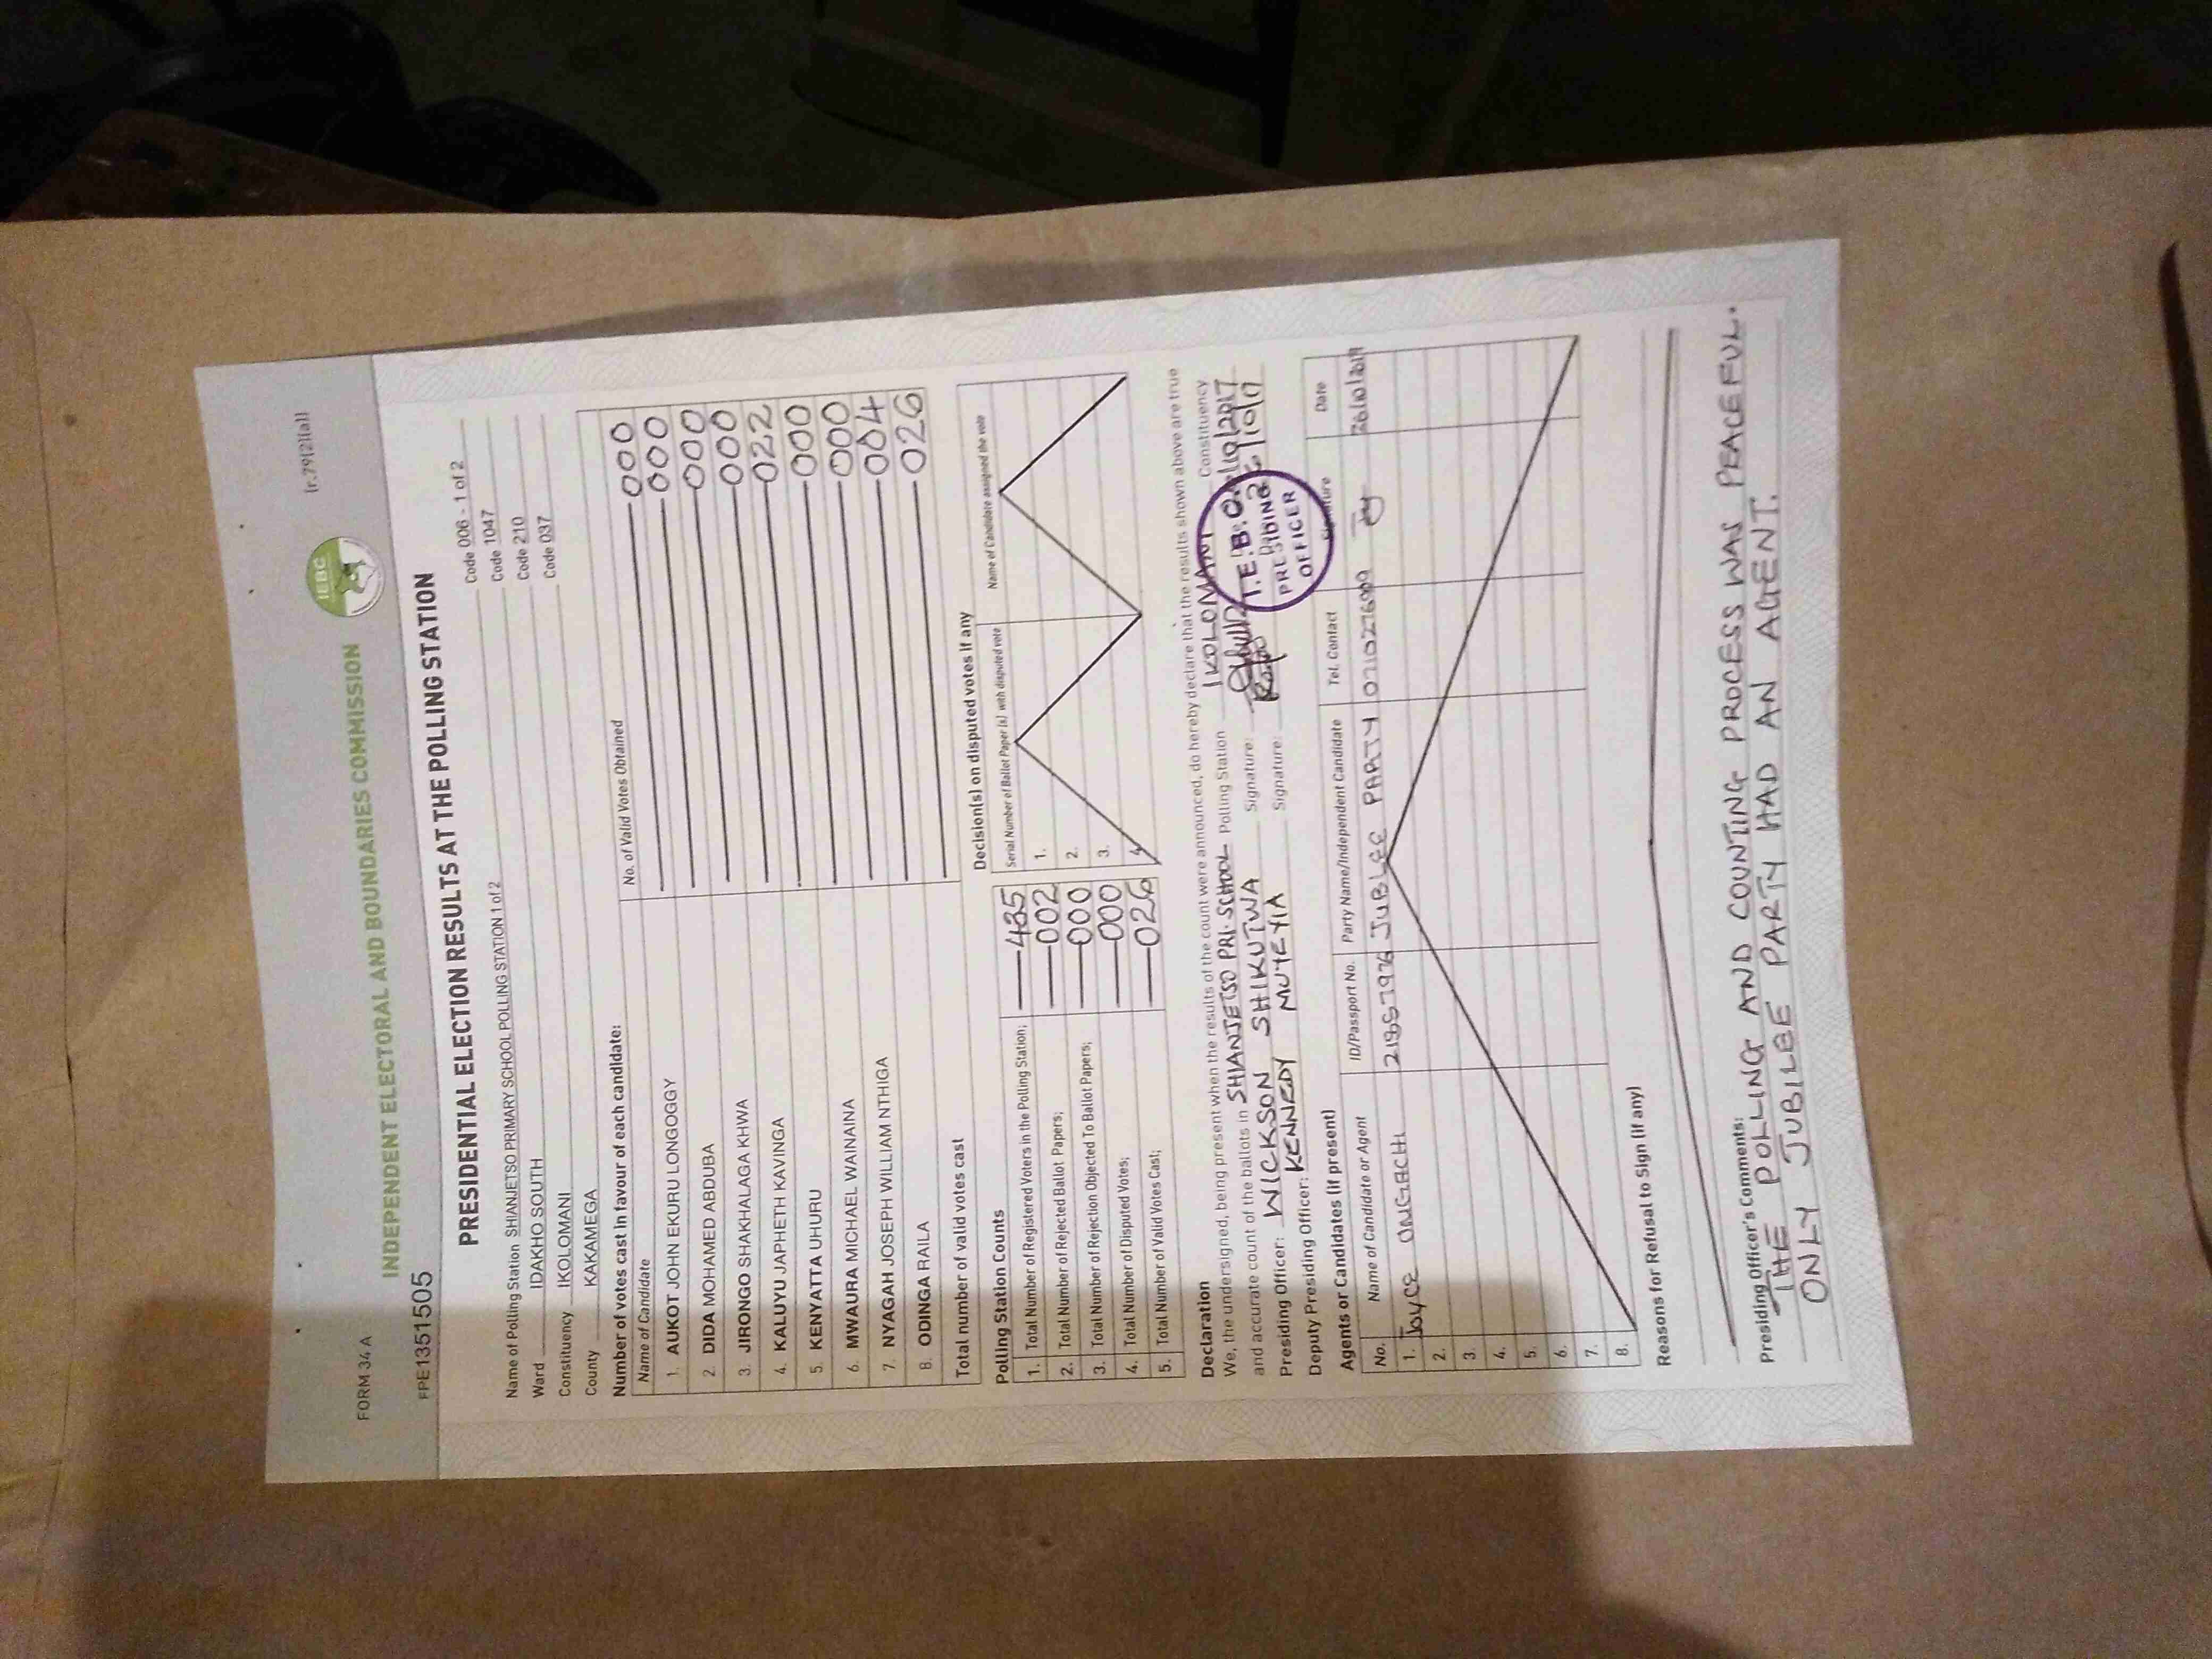 FORM 34 A
(r.79(2)(a))
INDEPENDENT ELECTORAL AND BOUNDARIES COMMISSION
IEBC
FPE1351505
PRESIDENTIAL ELECTION RESULTS AT THE POLLING STATION
Name of Polling Station SHIANJETSO PRIMARY SCHOOL POLLING STATION 1 of 2 Code 006 - 1 of 2
Ward IDAKHO SOUTH Code 1047
Constituency IKOLOMANI Code 210
County KAKAMEGA Code 037
Number of votes cast in favour of each candidate:
Name of Candidate No. of Valid Votes Obtained
1. AUKOT JOHN EKURU LONGOGGY 000
2. DIDA MOHAMED ABDUBA 000
3. JIRONGO SHAKHALAGA KHWA 000
4. KALUYU JAPHETH KAVINGA 000
5. KENYATTA UHURU 022
6. MWAURA MICHAEL WAINAINA 000
7. NYAGAH JOSEPH WILLIAM NTHIGA 000
8. ODINGA RAILA 004
Total number of valid votes cast 026
Polling Station Counts
1. Total Number of Registered Voters in the Polling Station; 485
2. Total Number of Rejected Ballot Papers; 002
3. Total Number of Rejection Objected To Ballot Papers; 000
4. Total Number of Disputed Votes; 000
5. Total Number of Valid Votes Cast; 026
Decision(s) on disputed votes if any
Serial Number of Ballot Paper (s) with disputed vote Name of Candidate assigned the vote
1.
2.
3.
4.
Declaration
We, the undersigned, being present when the results of the count were announced, do hereby declare that the results shown above are true
and accurate count of the ballots in SHIANJETSO PRI. SCHOOL Polling Station IKOLOMANI Constituency
Presiding Officer: WICKSON SHIKUTWA Signature:
Deputy Presiding Officer: KENNEDY MUTEYIA Signature:
PRESIDING
OFFICER
Agents or Candidates (if present)
No. Name of Candidate or Agent ID/Passport No. Party Name/Independent Candidate Tel. Contact Signature Date
1. Joyce JUBLEE PARTY
2.
3.
4.
5.
6.
7.
8.
Reasons for Refusal to Sign (if any)
Presiding Officer's Comments:
THE POLLING AND COUNTING PROCESS WAS PEACEFUL.
ONLY JUBILEE PARTY HAD AN AGENT.